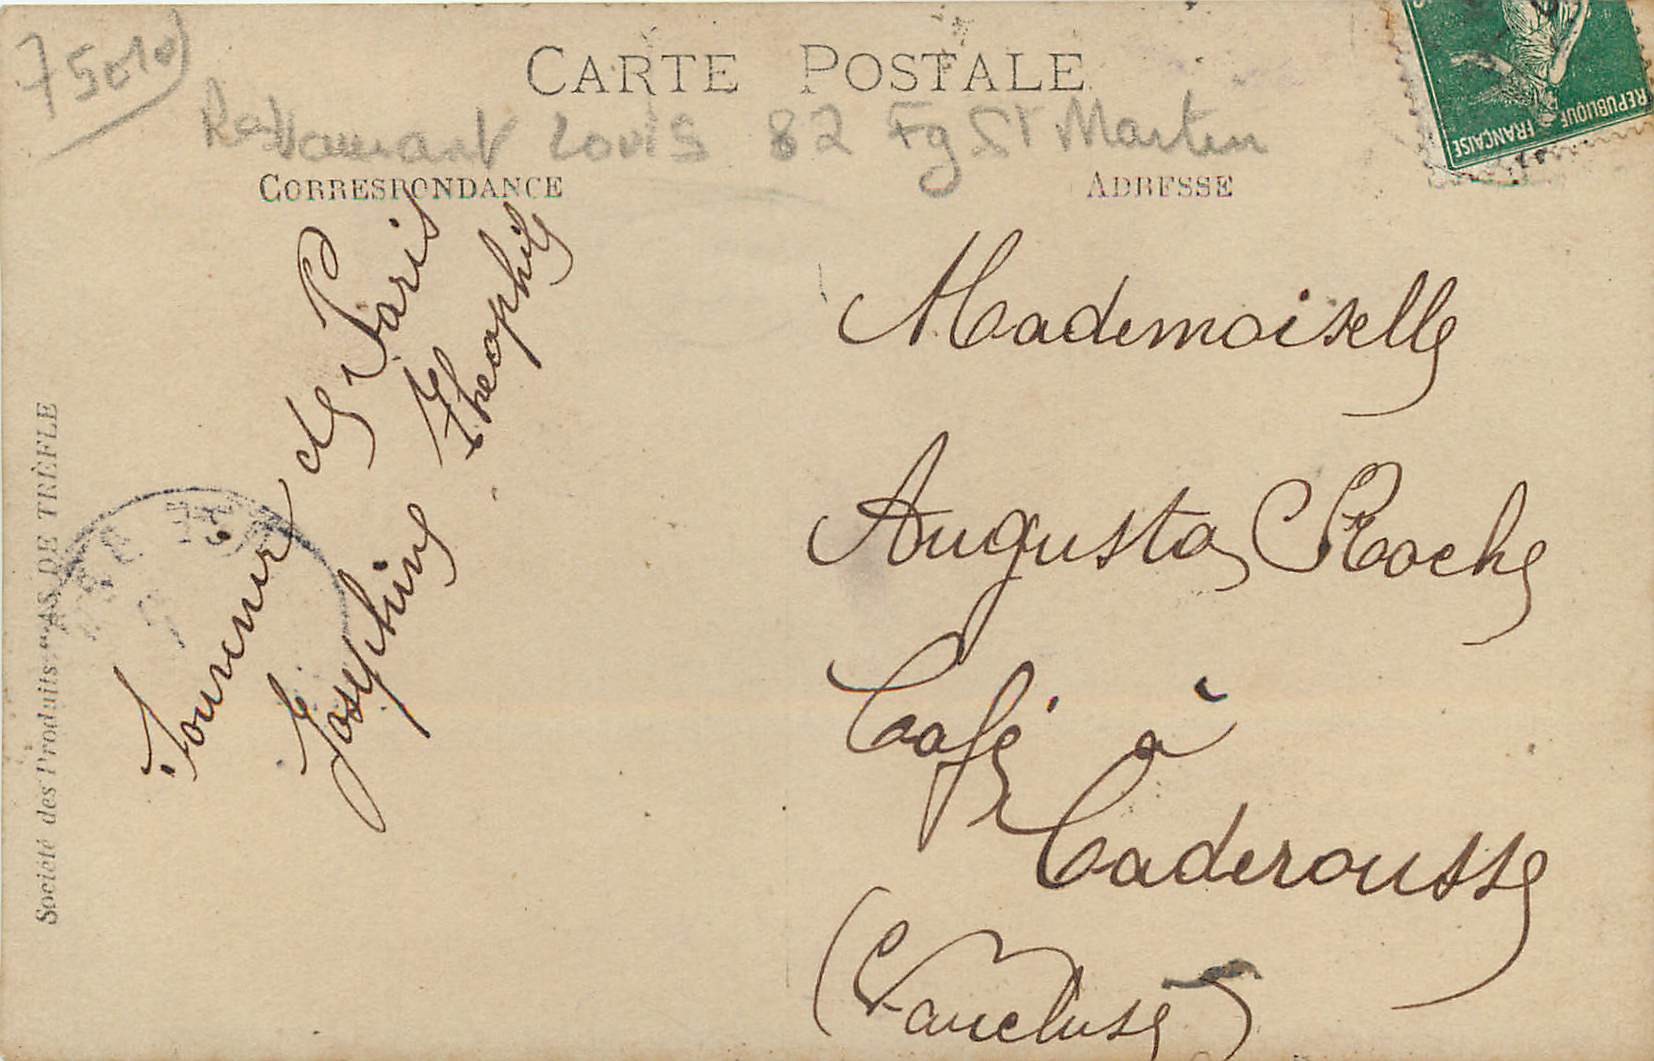 75010
CARTE POSTALE
Restaurant Louis 82 Fg St Martin
CORRESPONDANCE
ADRESSE
REPUBLIQUE
FRANÇAISE
Société des Produits "AS DE TRÈFLE
Souvenir de Paris
Josephine Theophile
Mademoiselle
Augusta Roche
Café à
Caderousse
(Vaucluse)